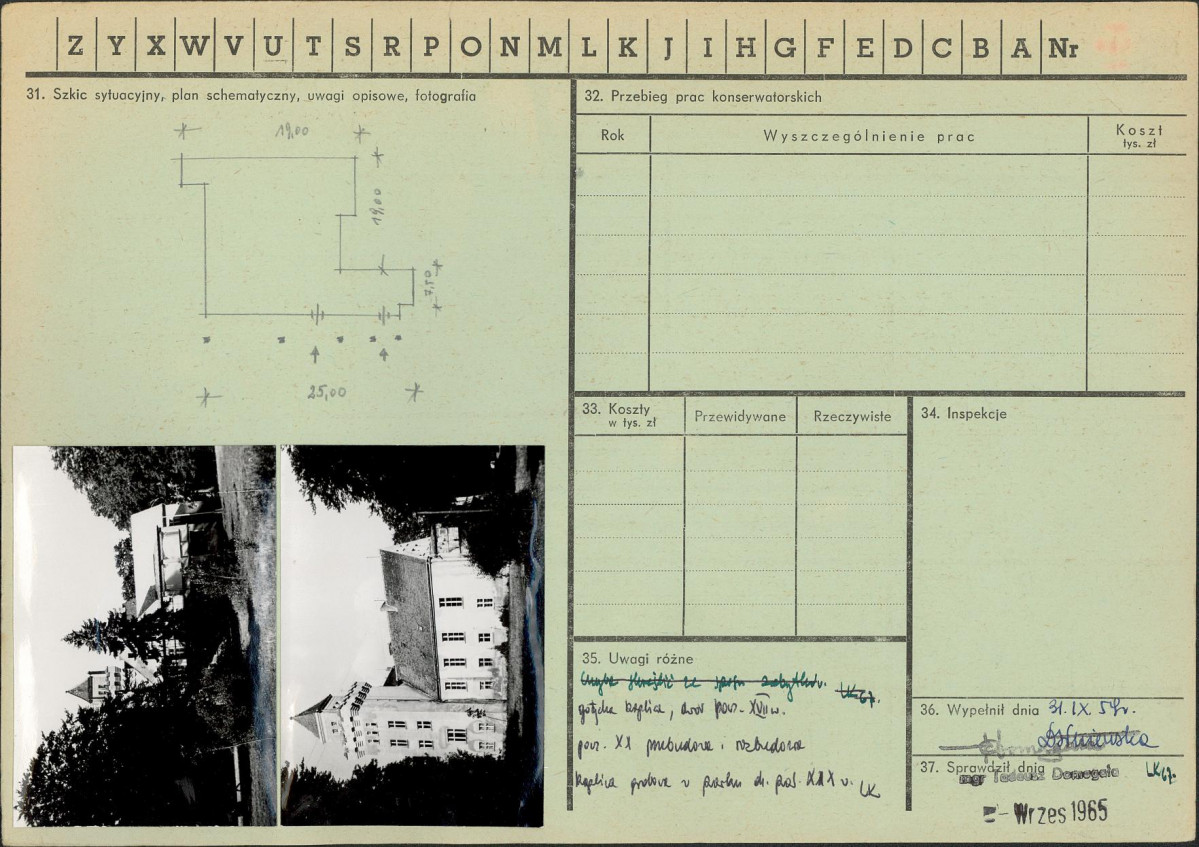 Z Y X W V U T S R P O N M L K J I H G F E D C B A Nr
31. Szkic sytuacyjny, plan schematyczny, uwagi opisowe, fotografia
19,00
19,00
7,50
25,00
32. Przebieg prac konserwatorskich
Rok
Wyszczególnienie prac
Koszt
tys. zł
33. Koszty
w tys. zł
Przewidywane
Rzeczywiste
34. Inspekcje
35. Uwagi różne
skreślić ze spisu zabytków. LK 67.
kaplica, dwór poł. XVII w.
pocz. XX przebudowa i rozbudowa
kaplica grobowa w parku dr. poł. XIX w. LK
36. Wypełnił dnia 31.IX.59r.
37. Sprawdził dnia
mgr Tadeusz Domagała
LK 67.
- Wrzes 1965